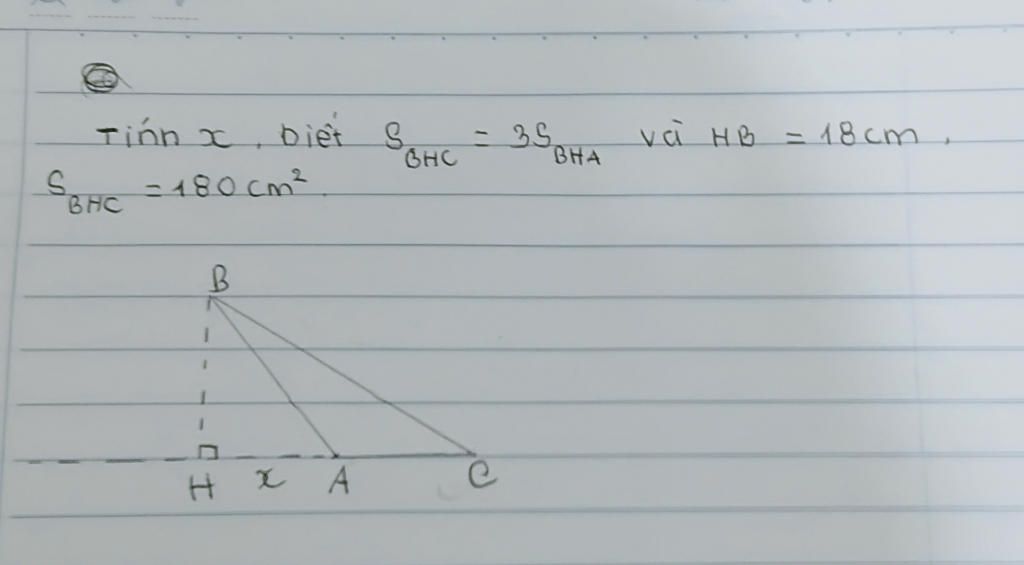 Tính x, biết S_BHC = 3S_BHA và HB = 18cm,
S_BHC = 180cm².
B
H x A C